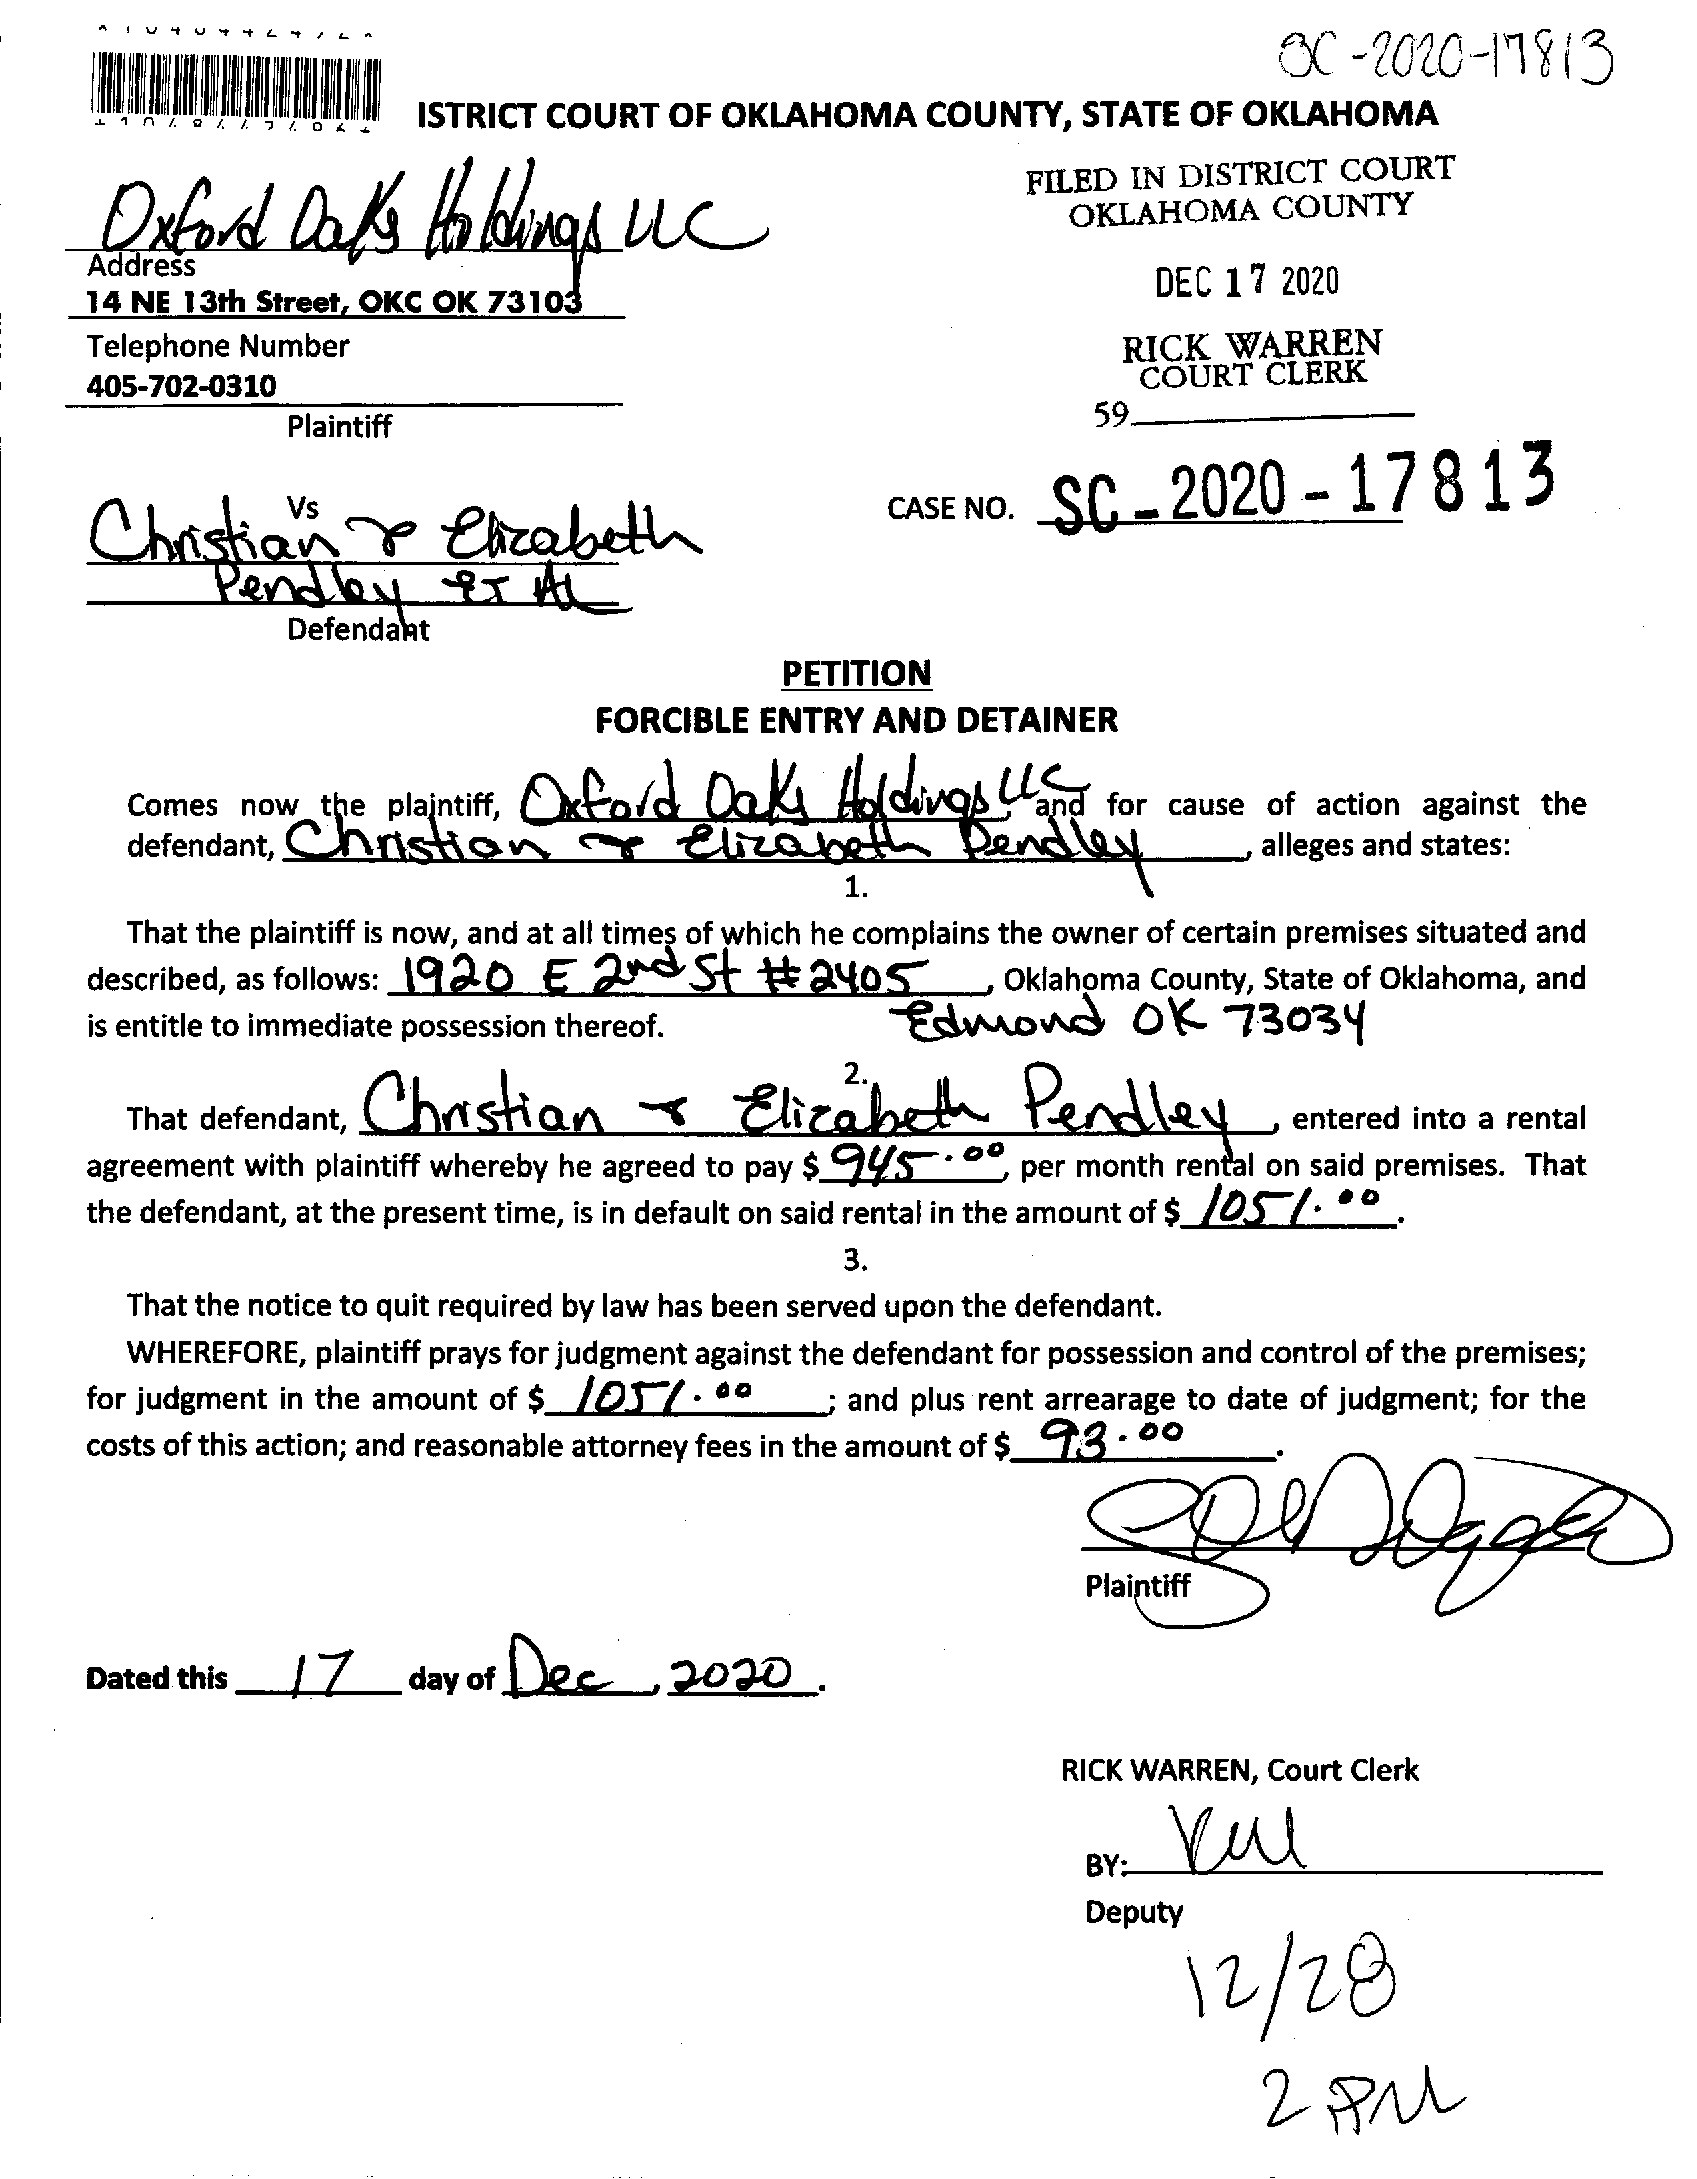 SC-2020-17813
ISTRICT COURT OF OKLAHOMA COUNTY, STATE OF OKLAHOMA
FILED IN DISTRICT COURT
OKLAHOMA COUNTY
Oxford Oaks Holdings LLC
Address
DEC 17 2020
14 NE 13th Street, OKC OK 73103
Telephone Number
RICK WARREN
COURT CLERK
405-702-0310
59
Plaintiff
Vs
CASE NO. SC-2020-17813
Christian & Elizabeth
Pendley et Al
Defendant
PETITION
FORCIBLE ENTRY AND DETAINER
Comes now the plaintiff, Oxford Oaks Holdings LLC and for cause of action against the
defendant, Christian & Elizabeth Pendley, alleges and states:
1.
That the plaintiff is now, and at all times of which he complains the owner of certain premises situated and
described, as follows: 1920 E 2nd St #2405, Oklahoma County, State of Oklahoma, and
is entitle to immediate possession thereof. Edmond OK 73034
2.
That defendant, Christian & Elizabeth Pendley, entered into a rental
agreement with plaintiff whereby he agreed to pay $ 945.00, per month rental on said premises. That
the defendant, at the present time, is in default on said rental in the amount of $ 1051.00.
3.
That the notice to quit required by law has been served upon the defendant.
WHEREFORE, plaintiff prays for judgment against the defendant for possession and control of the premises;
for judgment in the amount of $ 1051.00; and plus rent arrearage to date of judgment; for the
costs of this action; and reasonable attorney fees in the amount of $ 93.00.
Plaintiff
Dated this 17 day of Dec, 2020.
RICK WARREN, Court Clerk
BY:
Deputy
12/28
2 PM